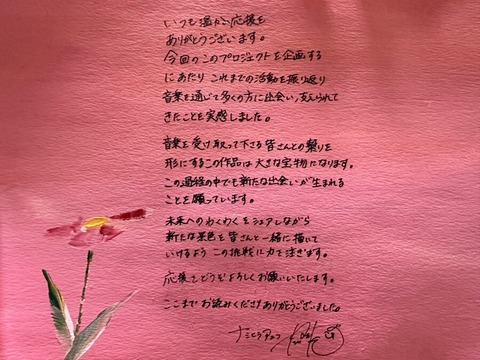 いつも温かい応援を
ありがとうございます。
今回のこのプロジェクトを企画する
にあたり これまでの活動を振り返り
音楽を通じて多くの方に出会い、支えられて
きたことを実感しました。
音楽を受け取って下さる皆さんとの繋りを
形にするこの作品は大きな宝物になります。
この過程の中でも新たな出会いが生まれる
ことを願っています。
未来へのわくわくをシェアしながら
新たな景色を皆さんと一緒に描いて
いけるよう この挑戦に力を注ぎます。
応援をどうぞよろしくお願いいたします。
ここまでお読みくださりありがとうございました。